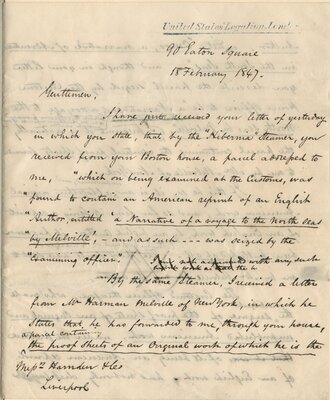 United States Legation, Lond
90 Eaton Square
18 February 1847.
Gentlemen,
I have just received your letter of yesterday
in which you state, that by the "Hibernia" Steamer, you
received from your Boston house, a parcel addressed to
me, "which on being examined at the Customs, was
"found to contain an American reprint of an English
"Author, entitled a Narrative of a voyage to the North seas
"by Melville', – and as such --- was seized by the
"examining officer" with any such
By the same Steamer, I received a letter
from Mr Harman Melville of New York, in which he
states that he has forwarded to me, through your house,
a parcel
the proof sheets of an Original work of which he is the
Harnden & Co
Liverpool